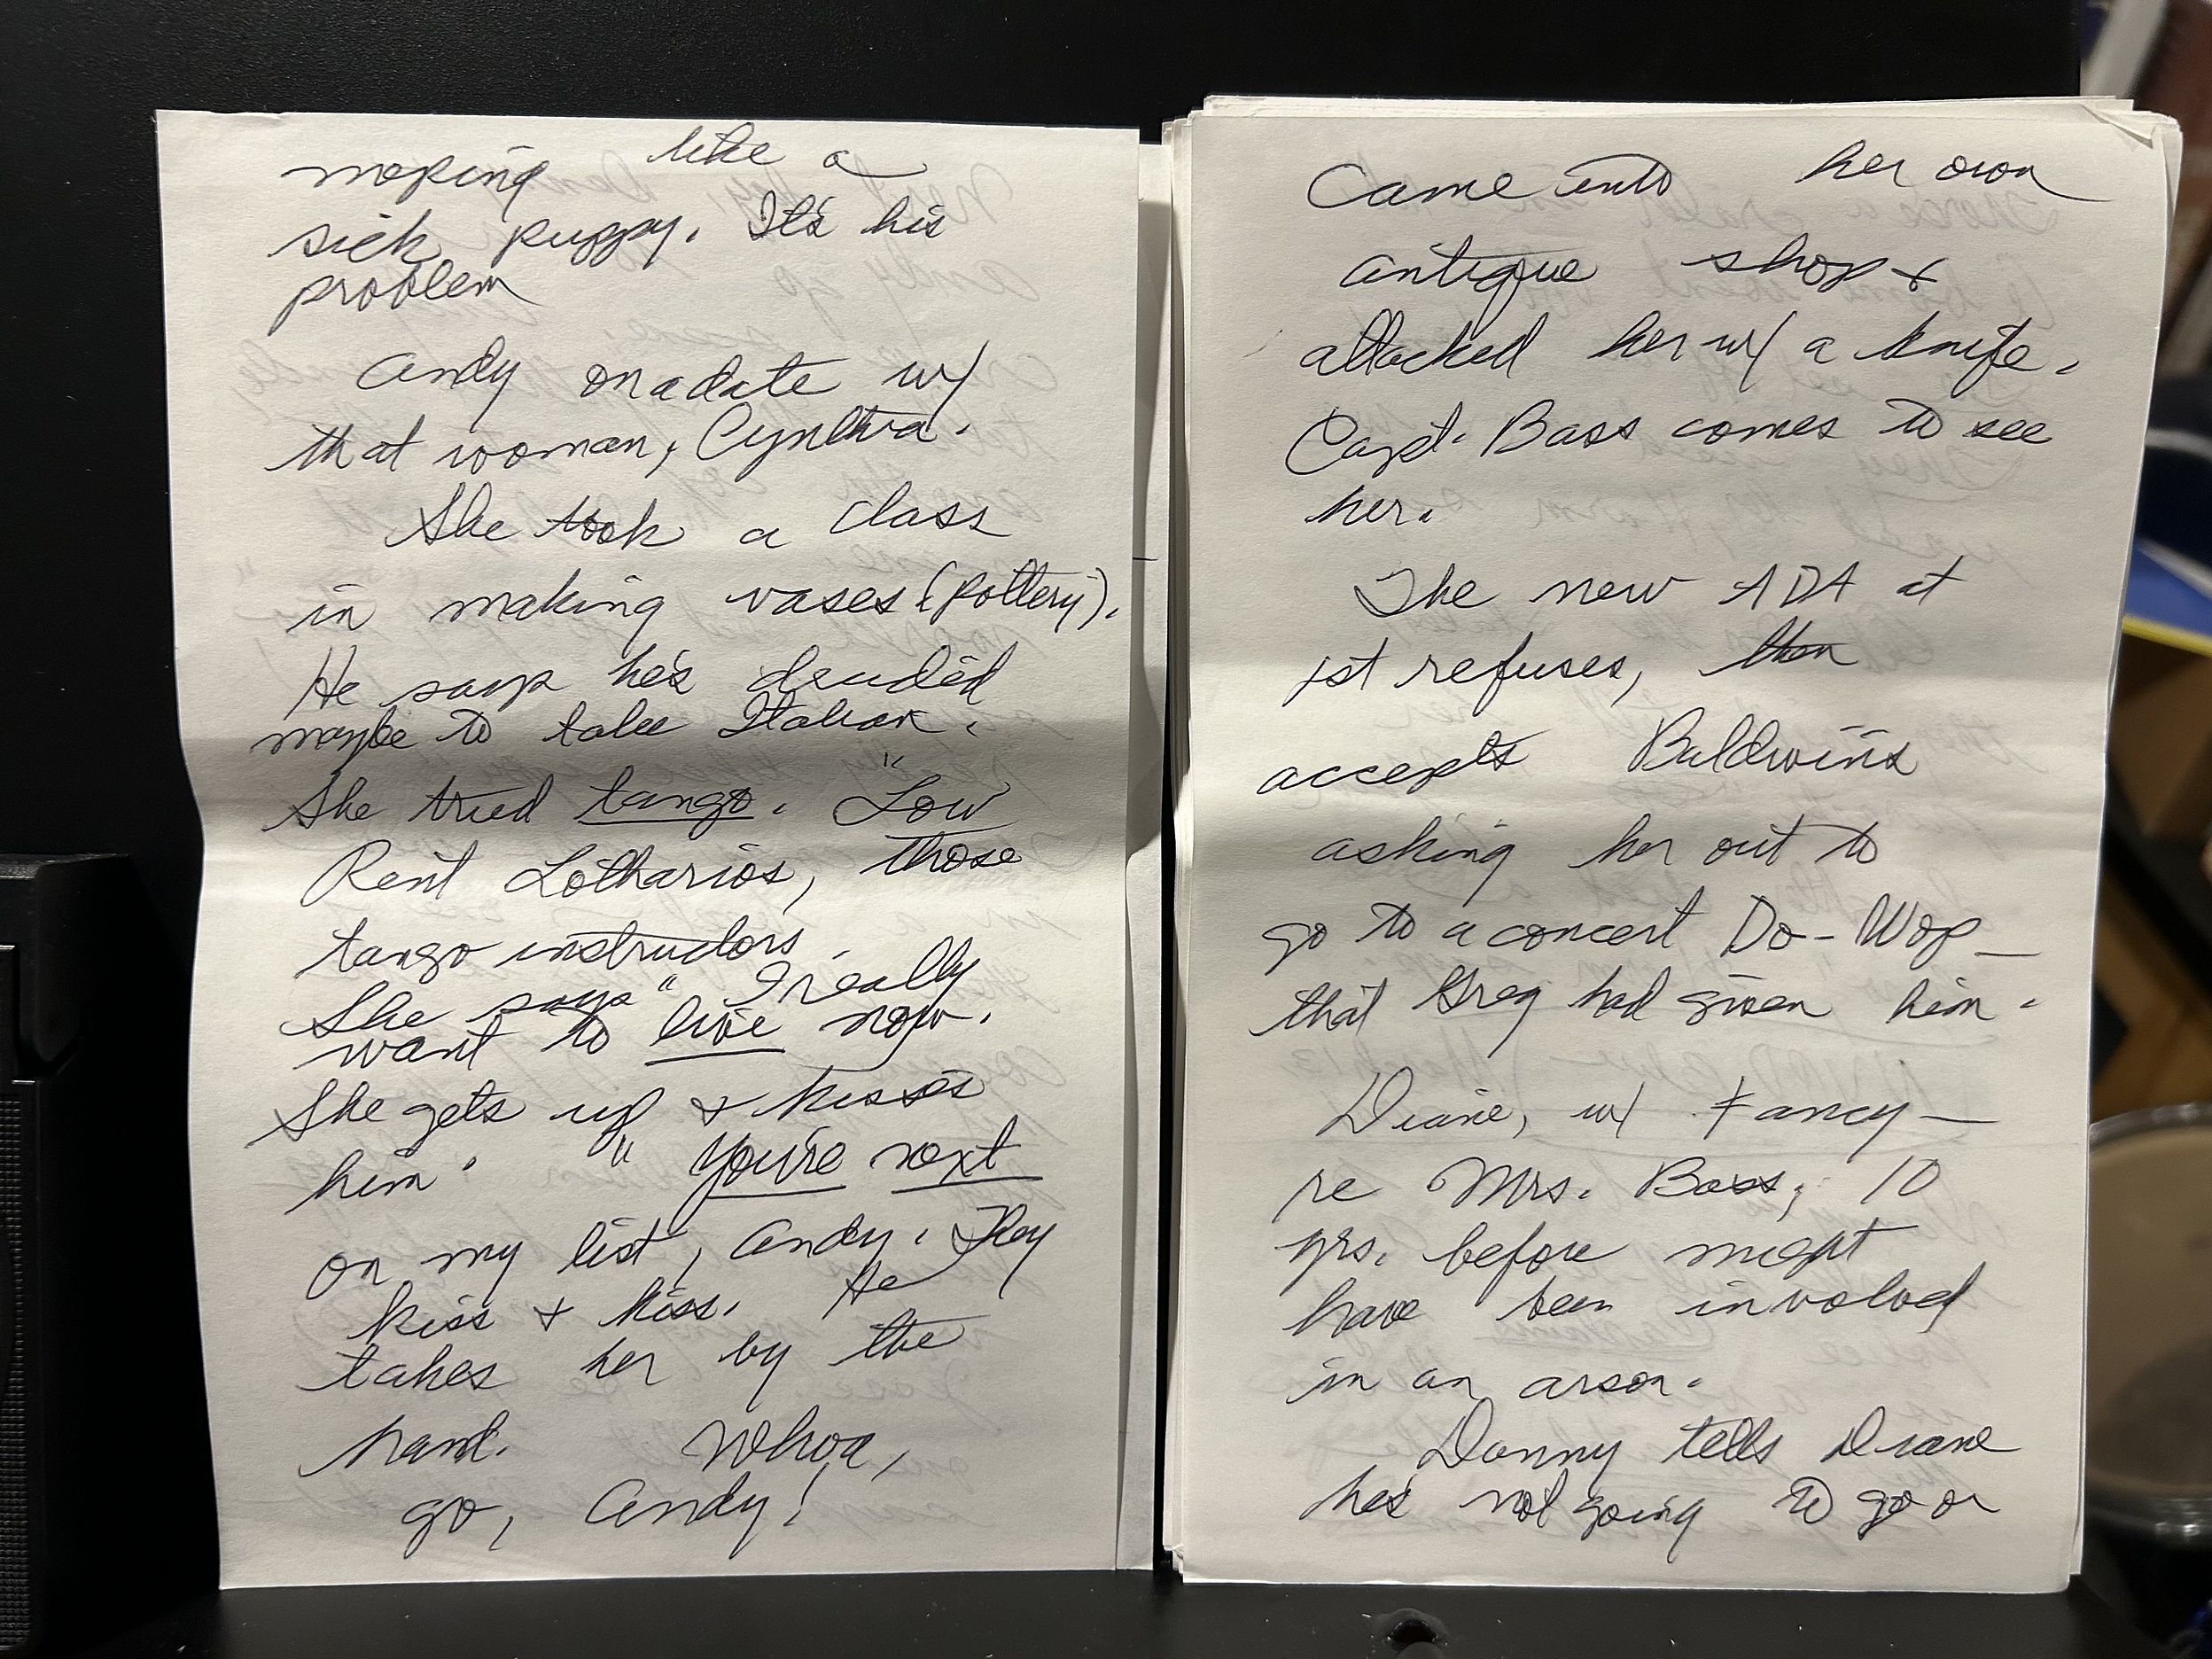 moping like a
sick puppy. It's his
problem
Andy on a date w/
that woman, Cynthia.
She took a class
in making vases (pottery).
He says he's decided
maybe to take Italian.
She tried tango. "Low
Rent Lotharios, those
tango instructors.
She says " I really
want to live now.
She gets up & kisses
him. " You're next
on my list, Andy. They
kiss & kiss. He
takes her by the
hand. Whoa,
go, Andy!
Came into her own
antique shop &
attacked her w/ a knife.
Capt. Bass comes to see
her.
The new ADA at
1st refuses, then
accepts Baldwin's
asking her out to
go to a concert Do-Wop—
that Greg had given him.
Diane, w/ Fancy—
re Mrs. Bass, 10
yrs. before might
have been involved
in an arson.
Danny tells Diane
he's not going to go on